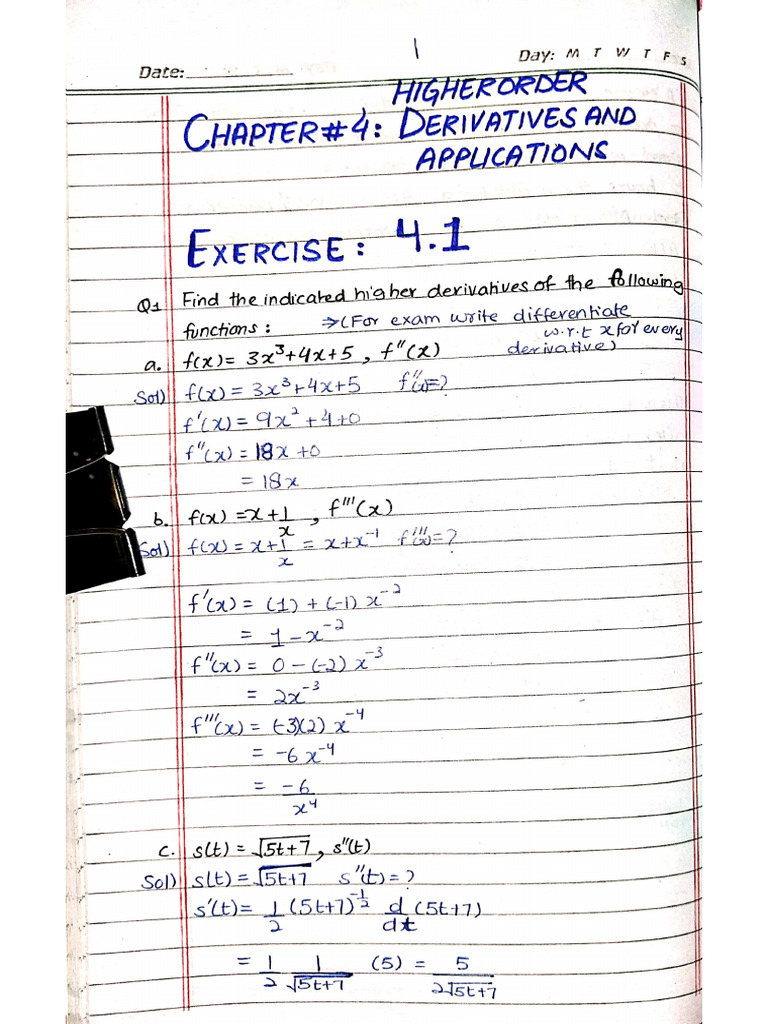 1
Date:
Day: M T W T F S
CHAPTER#4: HIGHER ORDER
DERIVATIVES AND
APPLICATIONS
EXERCISE: 4.1
Q1 Find the indicated higher derivatives of the following
functions: ⇒(For exam write differentiate
w.r.t x for every
derivative)
a. f(x) = 3x³+4x+5 , f''(x)
Sol) f(x) = 3x³+4x+5 f''(x)=?
f'(x) = 9x² + 4+0
f''(x) = 18x +0
= 18x
b. f(x) = x+1/x , f'''(x)
Sol) f(x) = x+1/x = x+x⁻¹ f'''(x)=?
f'(x) = (1) + (-1) x⁻²
= 1-x⁻²
f''(x) = 0-(-2) x⁻³
= 2x⁻³
f'''(x) = (-3)(2) x⁻⁴
= -6x⁻⁴
= -6/x⁴
c. s(t) = √5t+7 , s''(t)
Sol) s(t) = √5t+7 s''(t)=?
s'(t) = 1/2 (5t+7)^-1/2 d/dt (5t+7)
= 1/2 1/√5t+7 (5) = 5/2√5t+7